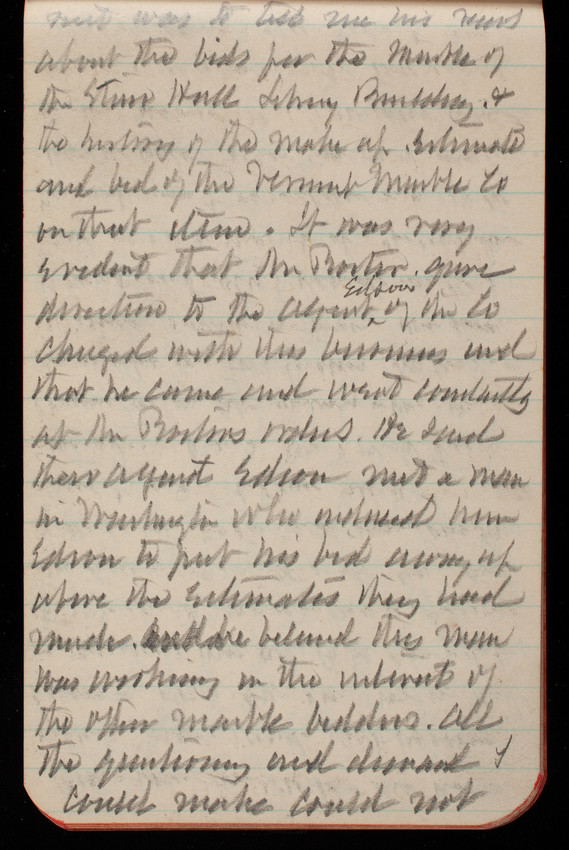 was to tell me his views
about the bids for the Marble of
the Stair Hall Library Building &
the history of the make up estimate
and bid of the Vermont Marble Co
on that item. It was very
evident that Mr Proctor gave
direction to the agent Edson of the Co
charged with this business and
that he came and went constantly
at Mr Proctors orders. He said
their agent Edson met a man
in Washington who induced him
Edson to put his bid away up
above the estimates they had
made. he believed this man
was working in the interest of
the other marble bidders. All
the questioning and demand I
could make could not